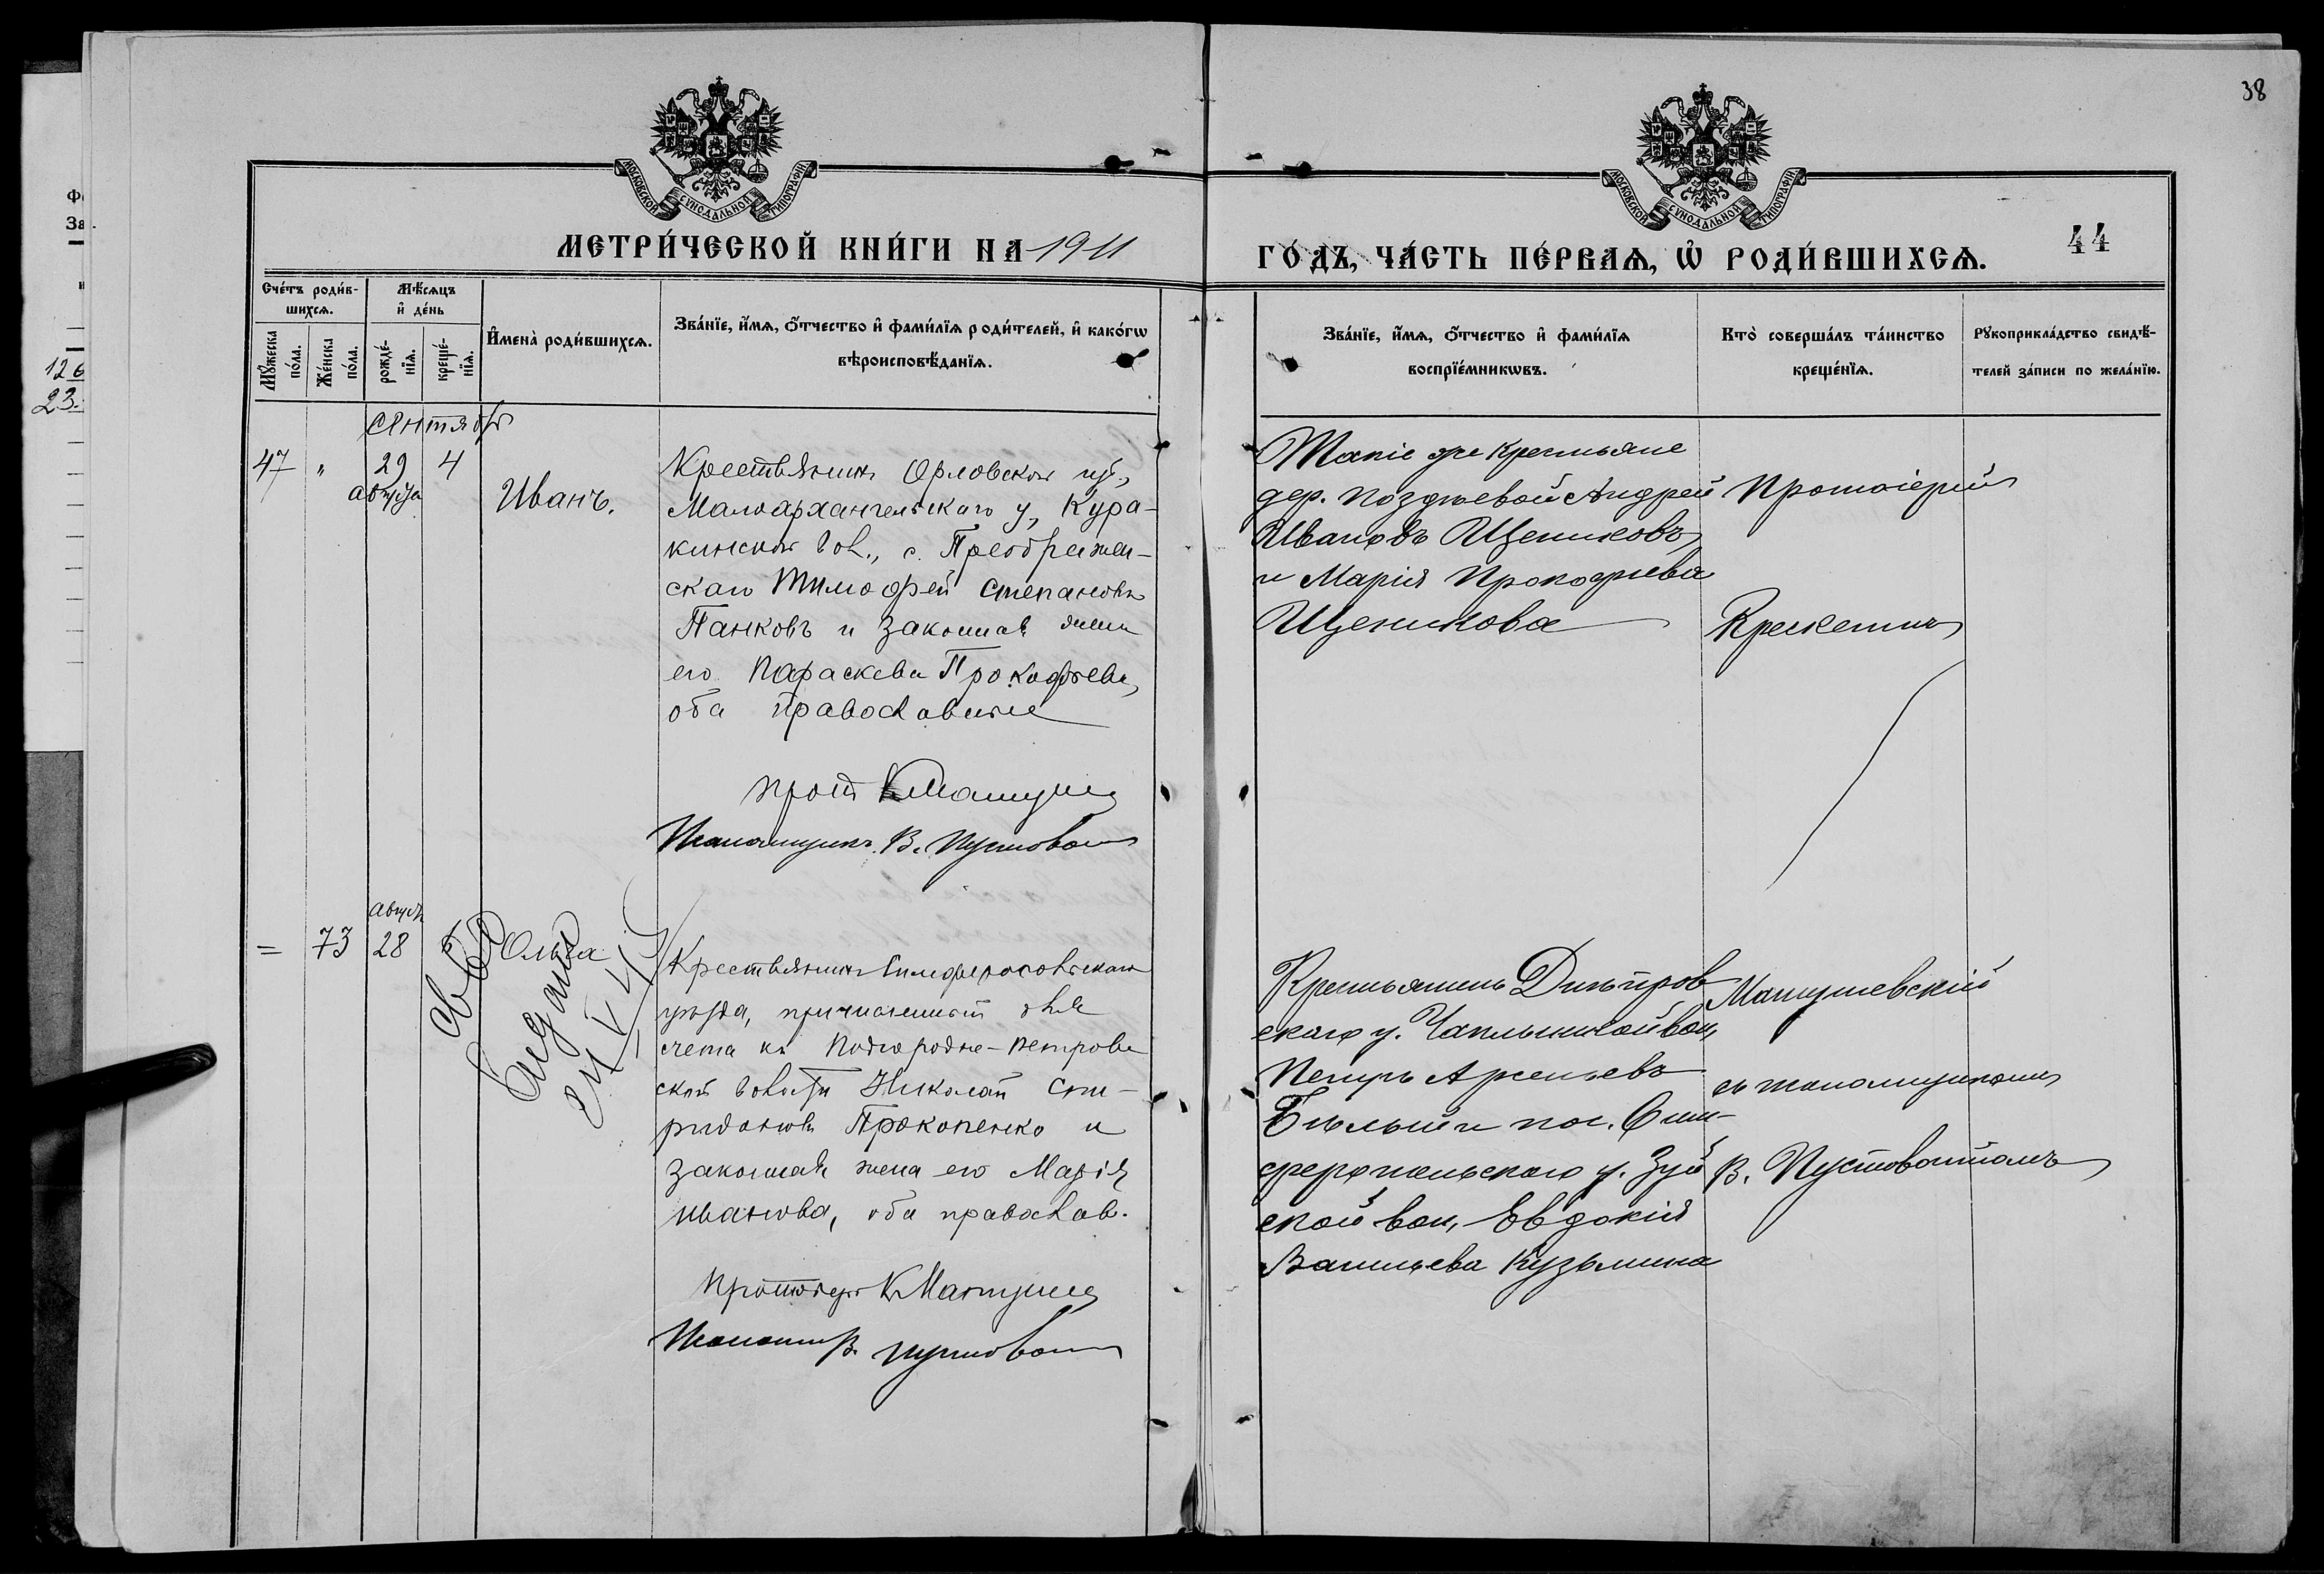 38
МОСКОВСКОЙ СѴНОДАЛЬНОЙ ТИПОГРАФІИ.
МОСКОВСКОЙ СѴНОДАЛЬНОЙ ТИПОГРАФІИ.
МЕТРИ́ЧЕСКОЙ КНИ́ГИ НА 1911
ГО́ДЪ, ЧА́СТЬ ПЕ́РВАѦ, Ѡ҆ РОДИ́ВШИХСѦ.
44
Сче́тъ роди́в-
шихсѧ.
Мꙋ́жеска
по́ла.
Же́нска
по́ла.
Мѣ́сѧцъ
и҆ де́нь
рожде́-
нїѧ.
креще́-
нїѧ.
И҆мена̀ роди́вшихсѧ.
Зва́нїе, и҆́мѧ, ѻ҆́тчество и҆ фами́лїѧ роди́телей, и҆ како́гѡ
вѣроисповѣ́данїѧ.
Зва́нїе, и҆́мѧ, ѻ҆́тчество и҆ фами́лїѧ
воспрїе́мникѡвъ.
Кто̀ соверша́лъ та́инство
креще́нїѧ.
Рꙋкоприкла́дство свидѣ́-
телей за́писи по жела́нїю.
126
23.
Сентябрь
47 " 29 4
августа
Иванъ.
Крестьянинъ Орловской губ.,
Малоархангельскаго у., Кура-
кинской вол., с. Преображен-
скаго Тимофей Степановъ
Панковъ и законная жена
его Параскева Прокофьева,
оба православные
прот К Матуше
Псаломщикъ В. Пустовой
Такіе же крестьяне
дер. Позднѣевой Андрей
Ивановъ Щениковъ
и Марія Прокофьева
Щеникова
Протоіерей
= 73 28
Ольга
Крестьянинъ Симферопольскаго
уѣзда, причисленный для
счета къ Подгородне-Петров
ской волости Николай Спи-
ридоновъ Прокопенко и
законная жена его Марія
Иванова, оба православ.
Протоіер К Матуше
В. Пустовой
Крестьянинъ Днѣпров
скаго у. Чаплынской вол,
Петръ Арсеньевъ
Бѣлый и пос. Сим-
феропольскаго у. Зуй
ской вол, Евдокія
Васильева Кузьмина
Матушевскій
съ псаломщикомъ
В. Пустовойтомъ